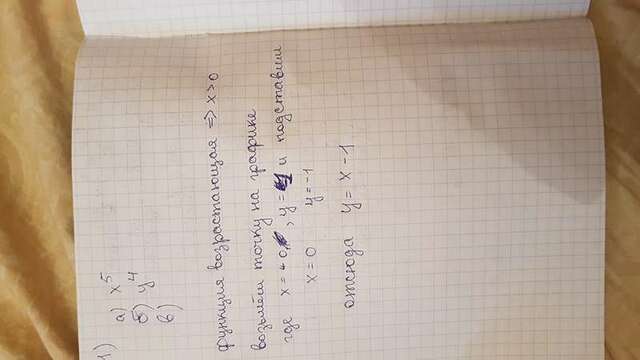 1)
а) x⁵
б) y⁴
в)
функция возрастающая => x>0
возьмём точку на графике
где x = 0, y = и подставим
x = 0 y = -1
отсюда y = x - 1